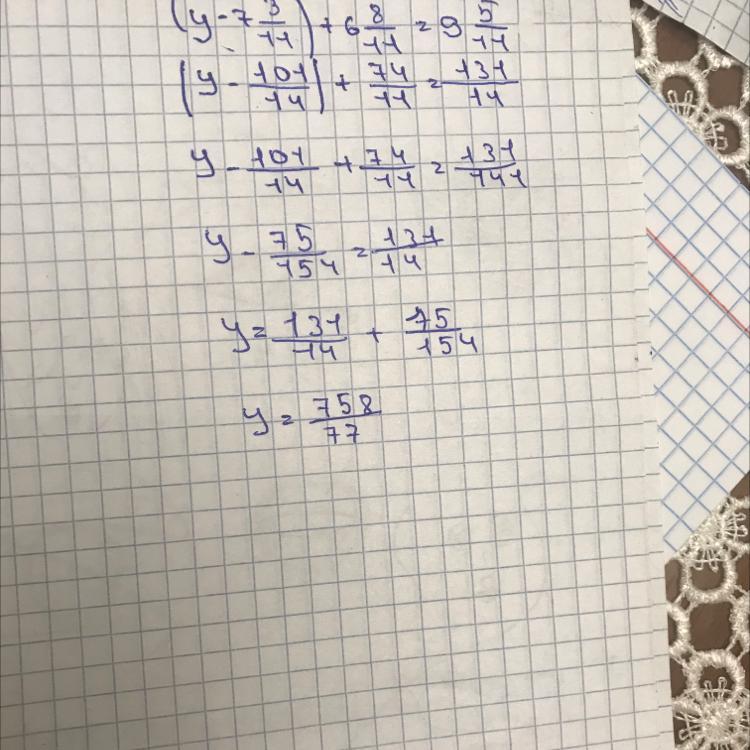 (y - 7 3/11) + 6 8/11 = 9 5/11
(y - 101/14) + 74/11 = 131/14
y - 101/14 + 74/11 = 131/141
y - 75/154 = 131/14
y = 131/14 + 75/154
y = 758/77